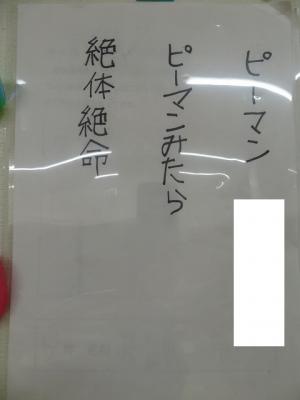 ピーマン
ピーマンみたら
絶体絶命